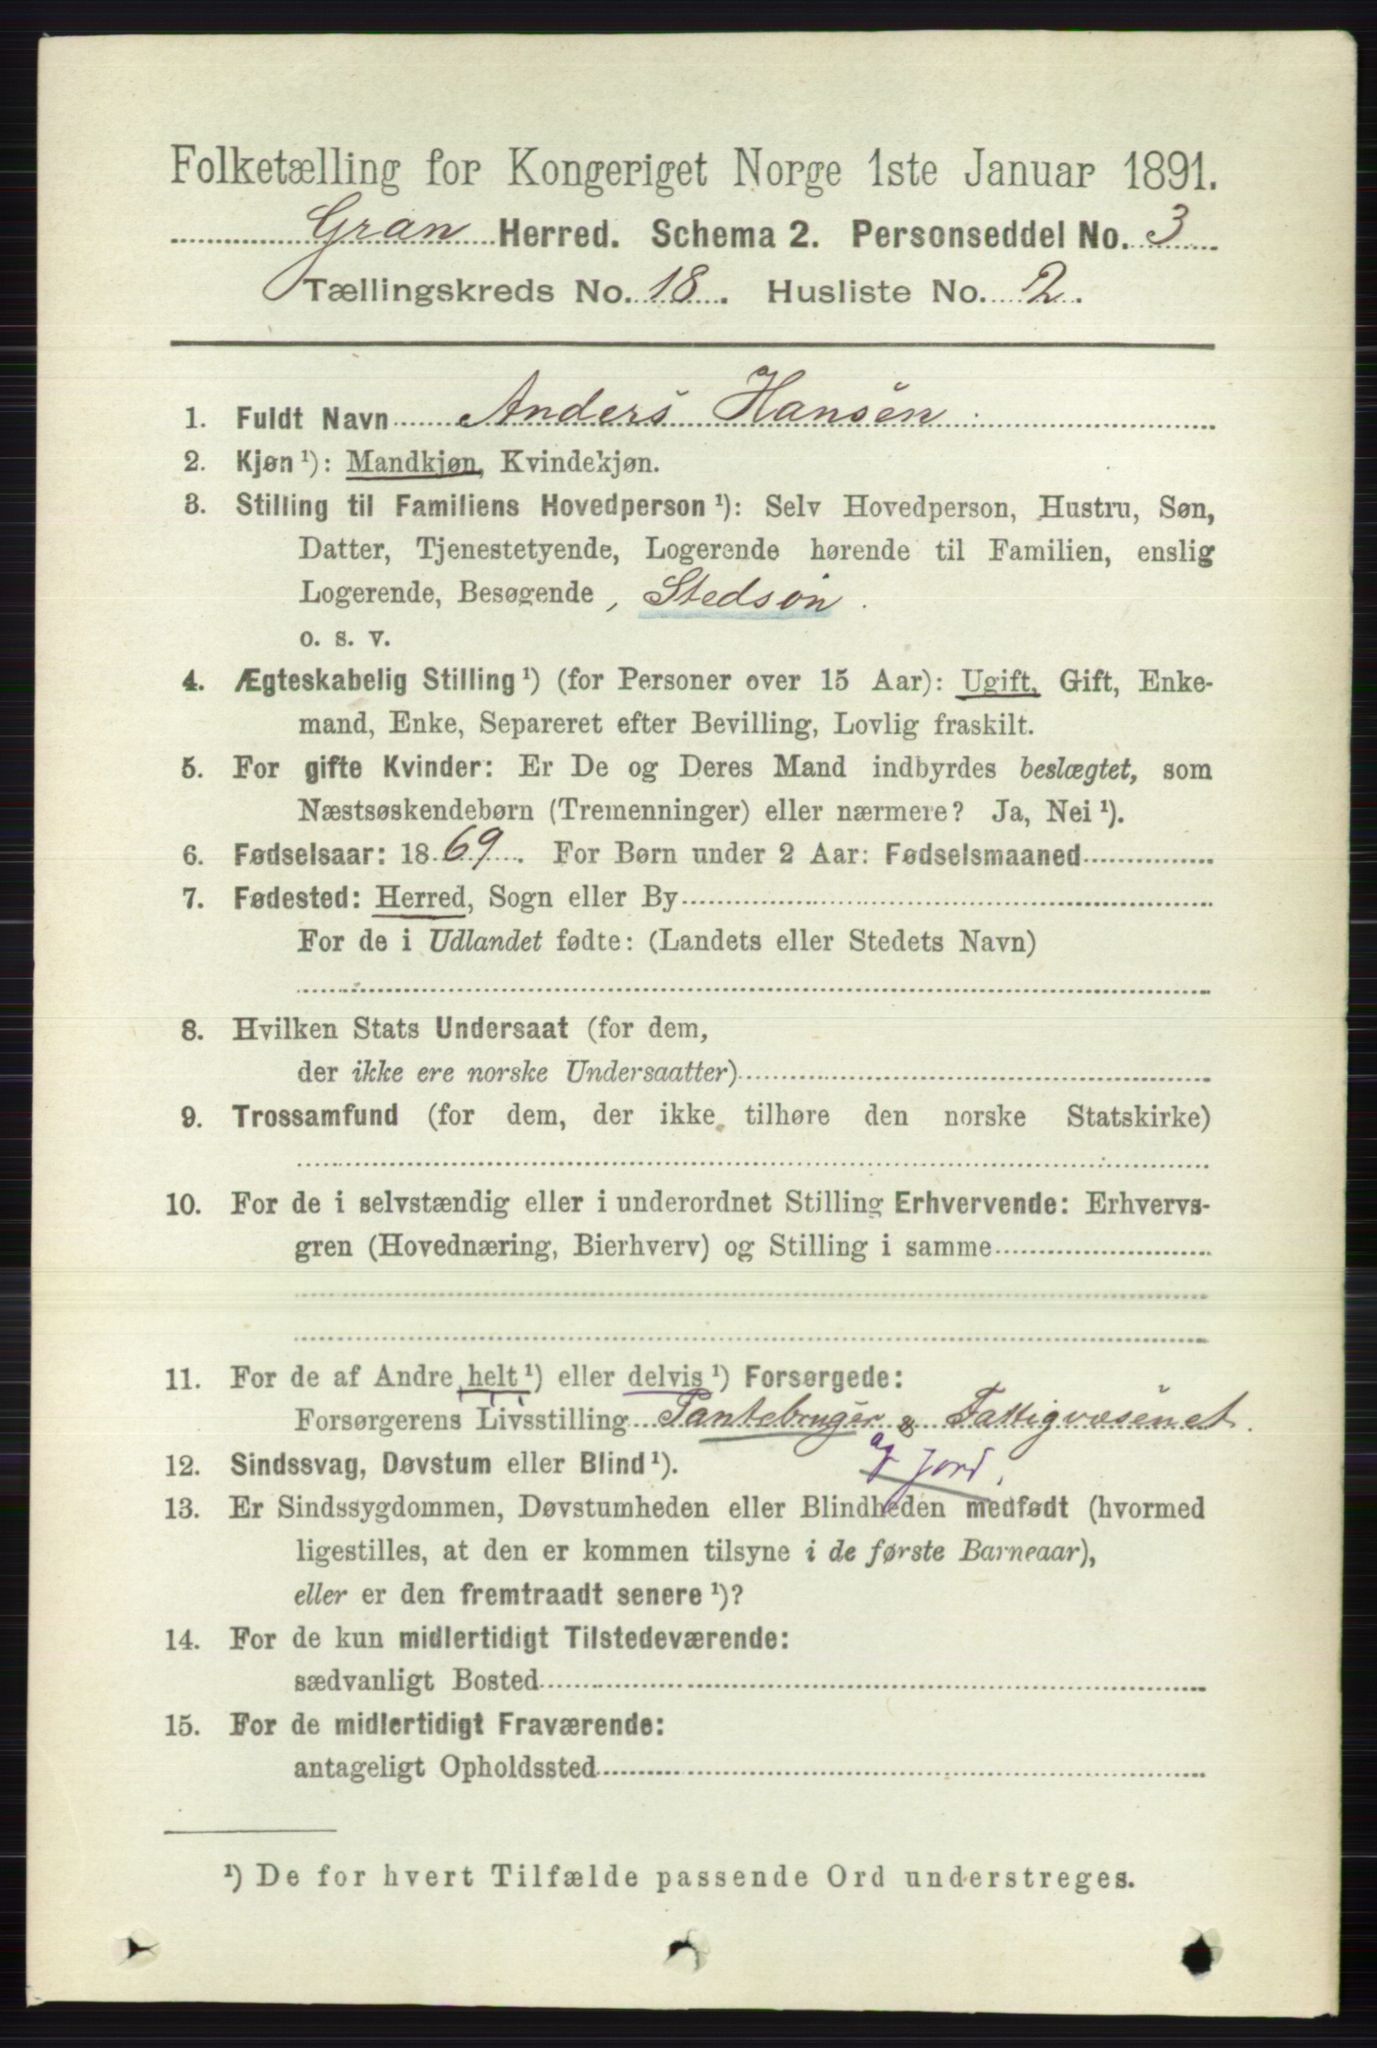 Folketælling for Kongeriget Norge 1ste Januar 1891.
Gran Herred. Schema 2. Personseddel No. 3
Tællingskreds No. 18. Husliste No. 2.
1. Fuldt Navn Anders Hansen
2. Kjøn ¹): Mandkjøn, Kvindekjøn.
3. Stilling til Familiens Hovedperson ¹): Selv Hovedperson, Hustru, Søn,
Datter, Tjenestetyende, Logerende hørende til Familien, enslig
Logerende, Besøgende, Stedsøn.
o. s. v.
4. Ægteskabelig Stilling ¹) (for Personer over 15 Aar): Ugift, Gift, Enke-
mand, Enke, Separeret efter Bevilling, Lovlig fraskilt.
5. For gifte Kvinder: Er De og Deres Mand indbyrdes beslægtet, som
Næstsøskendebørn (Tremenninger) eller nærmere? Ja, Nei ¹).
6. Fødselsaar: 1869. For Børn under 2 Aar: Fødselsmaaned
7. Fødested: Herred, Sogn eller By
For de i Udlandet fødte: (Landets eller Stedets Navn)
8. Hvilken Stats Undersaat (for dem,
der ikke ere norske Undersaatter)
9. Trossamfund (for dem, der ikke tilhøre den norske Statskirke)
10. For de i selvstændig eller i underordnet Stilling Erhvervende: Erhvervs-
gren (Hovednæring, Bierhverv) og Stilling i samme
11. For de af Andre helt ¹) eller delvis ¹) Forsørgede:
Forsørgerens Livsstilling Pantebruger & Fattigvæsenet.
af Jord.
12. Sindssvag, Døvstum eller Blind ¹).
13. Er Sindssygdommen, Døvstumheden eller Blindheden medfødt (hvormed
ligestilles, at den er kommen tilsyne i de første Barneaar),
eller er den fremtraadt senere ¹)?
14. For de kun midlertidigt Tilstedeværende:
sædvanligt Bosted
15. For de midlertidigt Fraværende:
antageligt Opholdssted
¹) De for hvert Tilfælde passende Ord understreges.